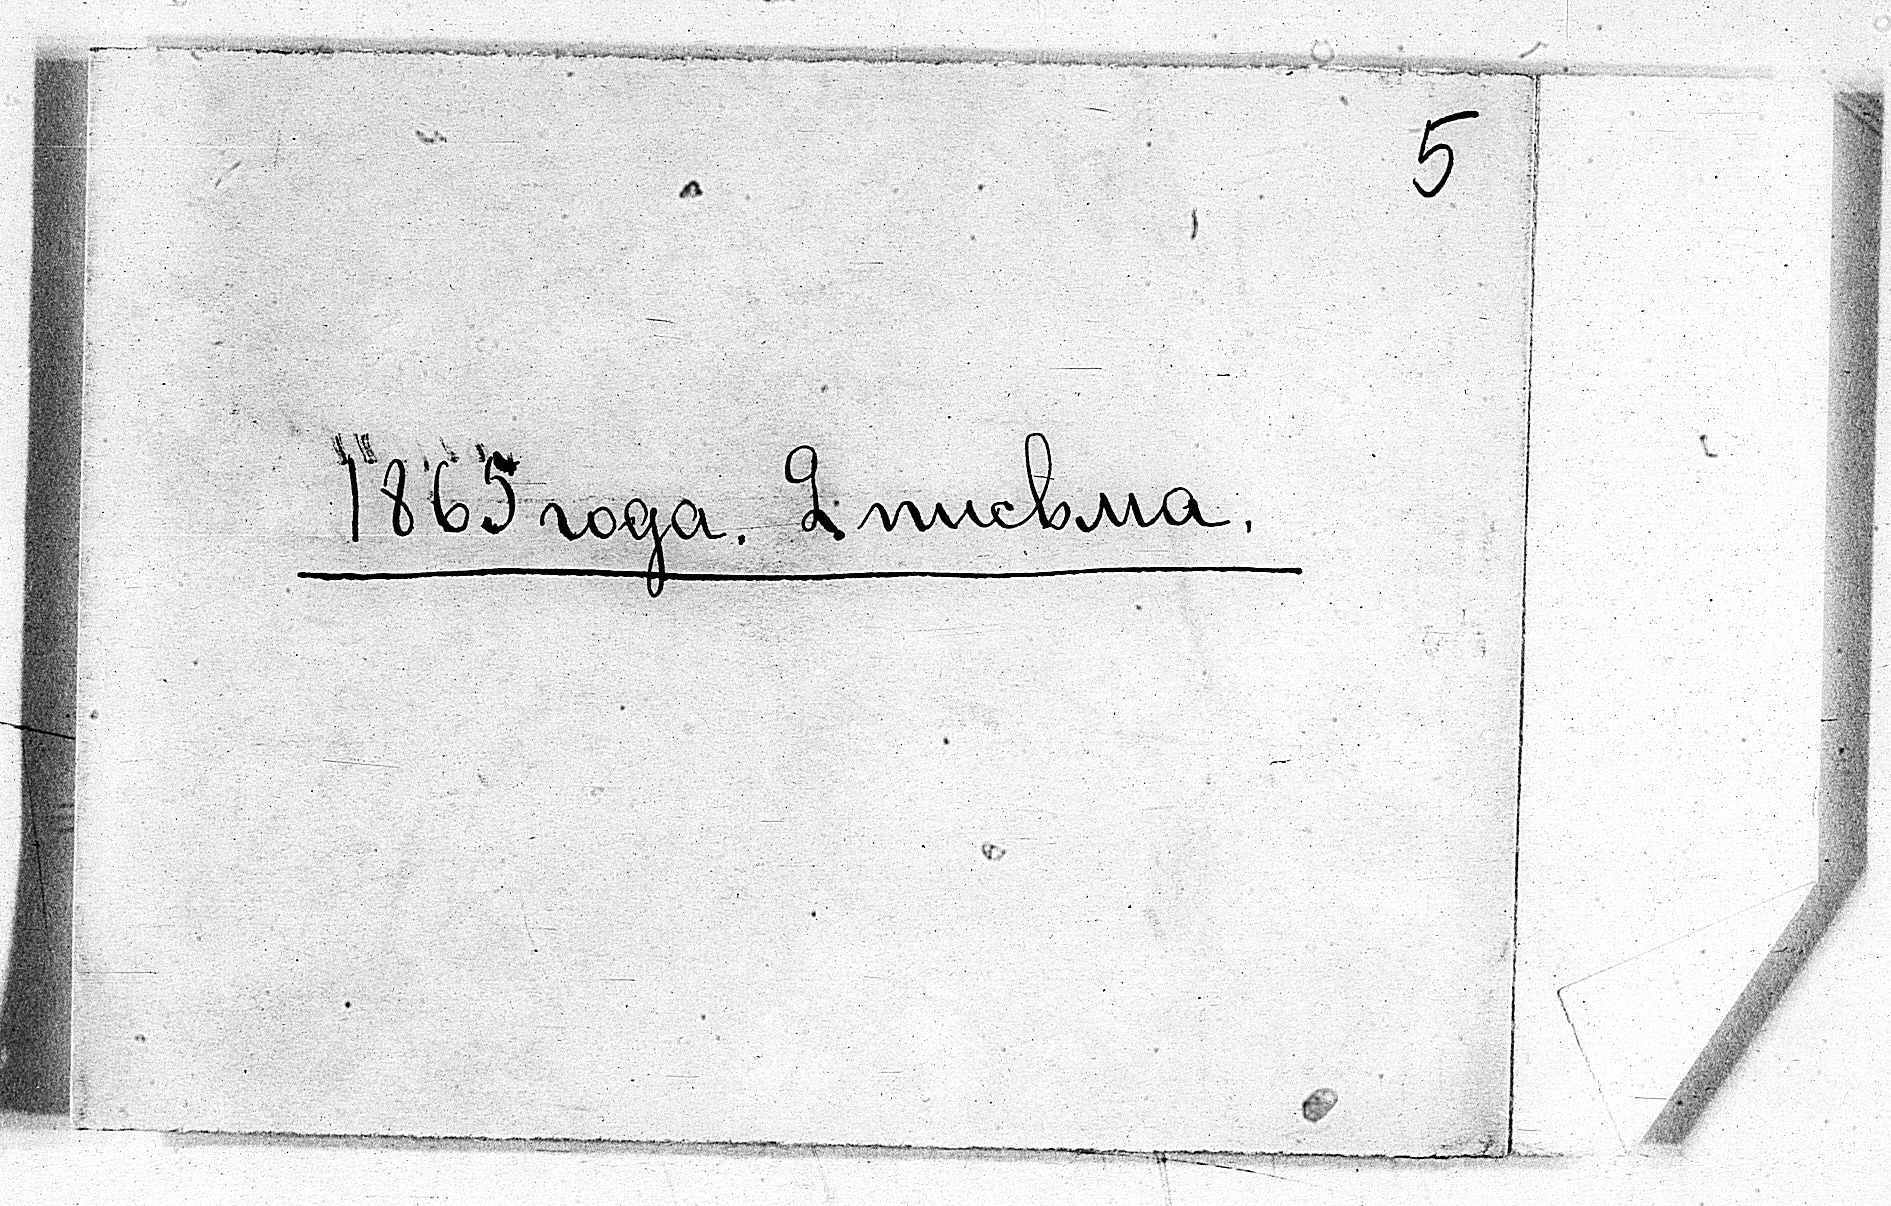 5
1865 года. 2 письма.